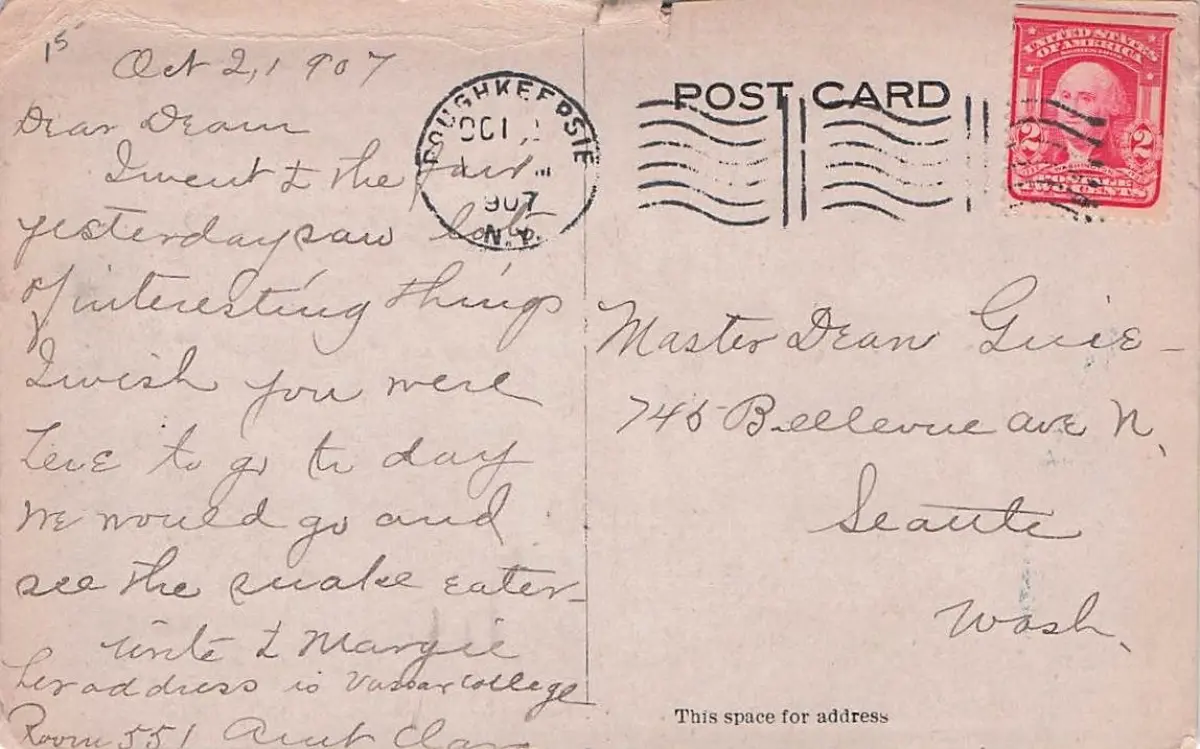 15
Oct 2, 1907
Dear Dean
I went to the fair
yesterday saw lots
of interesting things
I wish you were
here to go to day
we would go and
see the snake eater
write to Margie
her address is Vassar College
Room 551 Aunt Clara
POUGHKEEPSIE
OCT 2
1907
N.Y.
POST CARD
UNITED STATES
OF AMERICA
2 2
Master Dean Guie
745 Bellevue ave N.
Seattle
Wash.
This space for address